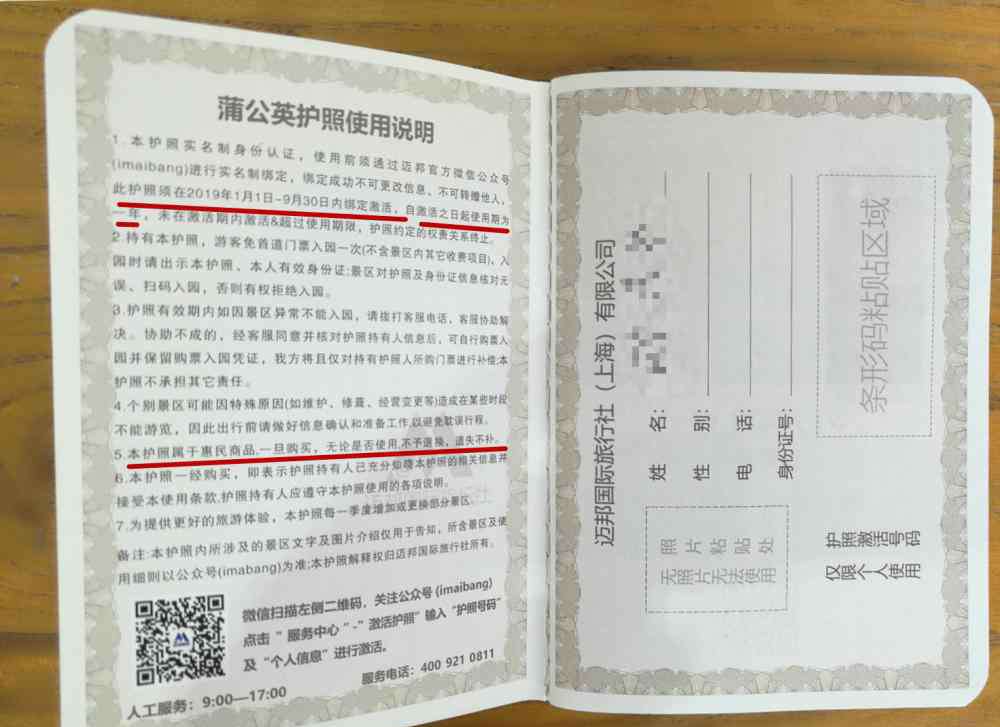 蒲公英护照使用说明
1.本护照实名制身份认证，使用前须通过迈邦官方微信公众号
(imaibang)进行实名制绑定，绑定成功不可更改信息、不可转赠他人，
此护照须在2019年1月1日-9月30日内绑定激活，自激活之日起使用期为
一年，未在激活期内激活&超过使用期限，护照约定的权责关系终止。
2.持有本护照，游客免首道门票入园一次(不含景区内其它收费项目)、入
园时请出示本护照、本人有效身份证:景区对护照及身份证信息核对无
误、扫码入园，否则有权拒绝入园。
3.护照有效期内如因景区异常不能入园，请拨打客服电话，客服协助解
决。协助不成的，经客服同意并核对护照持有人信息后，可自行购票入
园并保留购票入园凭证，我方将且仅对持有护照人所购门票进行补偿;本
护照不承担其它责任。
4.个别景区可能因特殊原因(如维护、修葺、经营变更等)造成在某些时段
不能游览，因此出行前请做好信息确认和准备工作,以避免耽误行程。
5.本护照属于惠民商品,一旦购买，无论是否使用,不予退换，遗失不补。
6.本护照一经购买，即表示护照持有人已充分知晓本护照的相关信息并
接受本使用条款,护照持有人应遵守本护照使用的各项说明。
7.为提供更好的旅游体验，本护照每一季度增加或更换部分景区.
备注:本护照内所涉及的景区文字及图片介绍仅用于告知，所含景区及使
用细则以公众号(imabang)为准;本护照解释权归迈邦国际旅行社所有。
微信扫描左侧二维码，关注公众号 (imaibang)
点击“ 服务中心 ”-“ 激活护照” 输入 “护照号码”
及 “个人信息” 进行激活。
人工服务：9:00—17:00
服务电话：400 921 0811
迈邦国际旅行社（上海）有限公司
姓 名:
性 别:
电 话:
身份证号:
条形码粘贴区域
照片粘贴处
无照片无法使用
护照激活号码
仅限个人使用